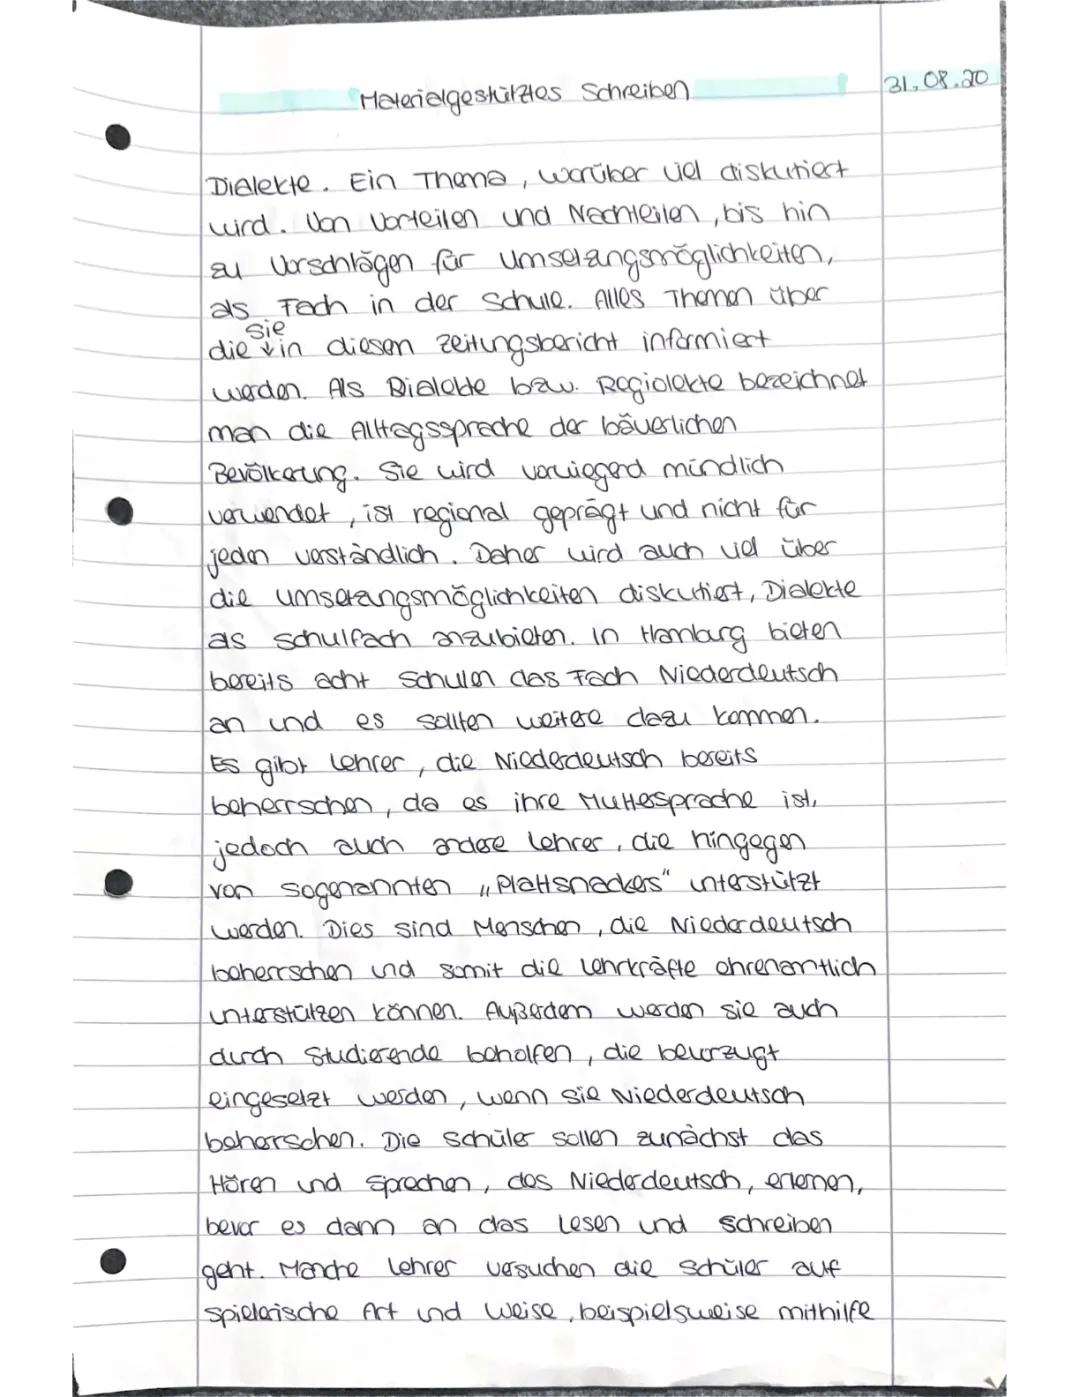 Materialgestütztes Schreiben
31.08.20
Dialekte. Ein Thema, worüber viel diskutiert
wird. Von Vorteilen und Nachteilen, bis hin
zu Vorschlägen für Umsetzungsmöglichkeiten,
als Fach in der Schule. Alles Themen über
die sie in diesen Zeitungsbericht informiert
werden. Als Dialekte bzw. Regiolekte bezeichnet
man die Alltagssprache der bäuerlichen
Bevölkerung. Sie wird vorwiegend mündlich
verwendet, ist regional geprägt und nicht für
jeden verständlich. Daher wird auch viel über
die Umsetzungsmöglichkeiten diskutiert, Dialekte
als Schulfach anzubieten. In Hamburg bieten
bereits acht Schulen das Fach Niederdeutsch
an und es sollten weitere dazu kommen.
Es gibt Lehrer, die Niederdeutsch bereits
beherrschen, da es ihre Muttersprache ist,
jedoch auch andere Lehrer, die hingegen
von sogenannten „Plattsnackers" unterstützt
werden. Dies sind Menschen, die Niederdeutsch
beherrschen und somit die Lehrkräfte ehrenamtlich
unterstützen können. Außerdem werden sie auch
durch Studierende beholfen, die bevorzugt
eingesetzt werden, wenn sie Niederdeutsch
beherrschen. Die Schüler sollen zunächst das
Hören und Sprechen, des Niederdeutsch, erlernen,
bevor es dann an das Lesen und Schreiben
geht. Manche Lehrer versuchen die Schüler auf
spielerische Art und Weise, beispielsweise mithilfe